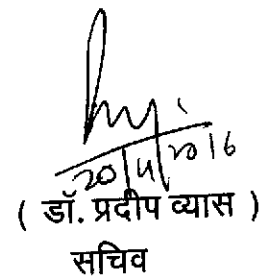 20/4/2016
( डॉ. प्रदीप व्यास )
सचिव